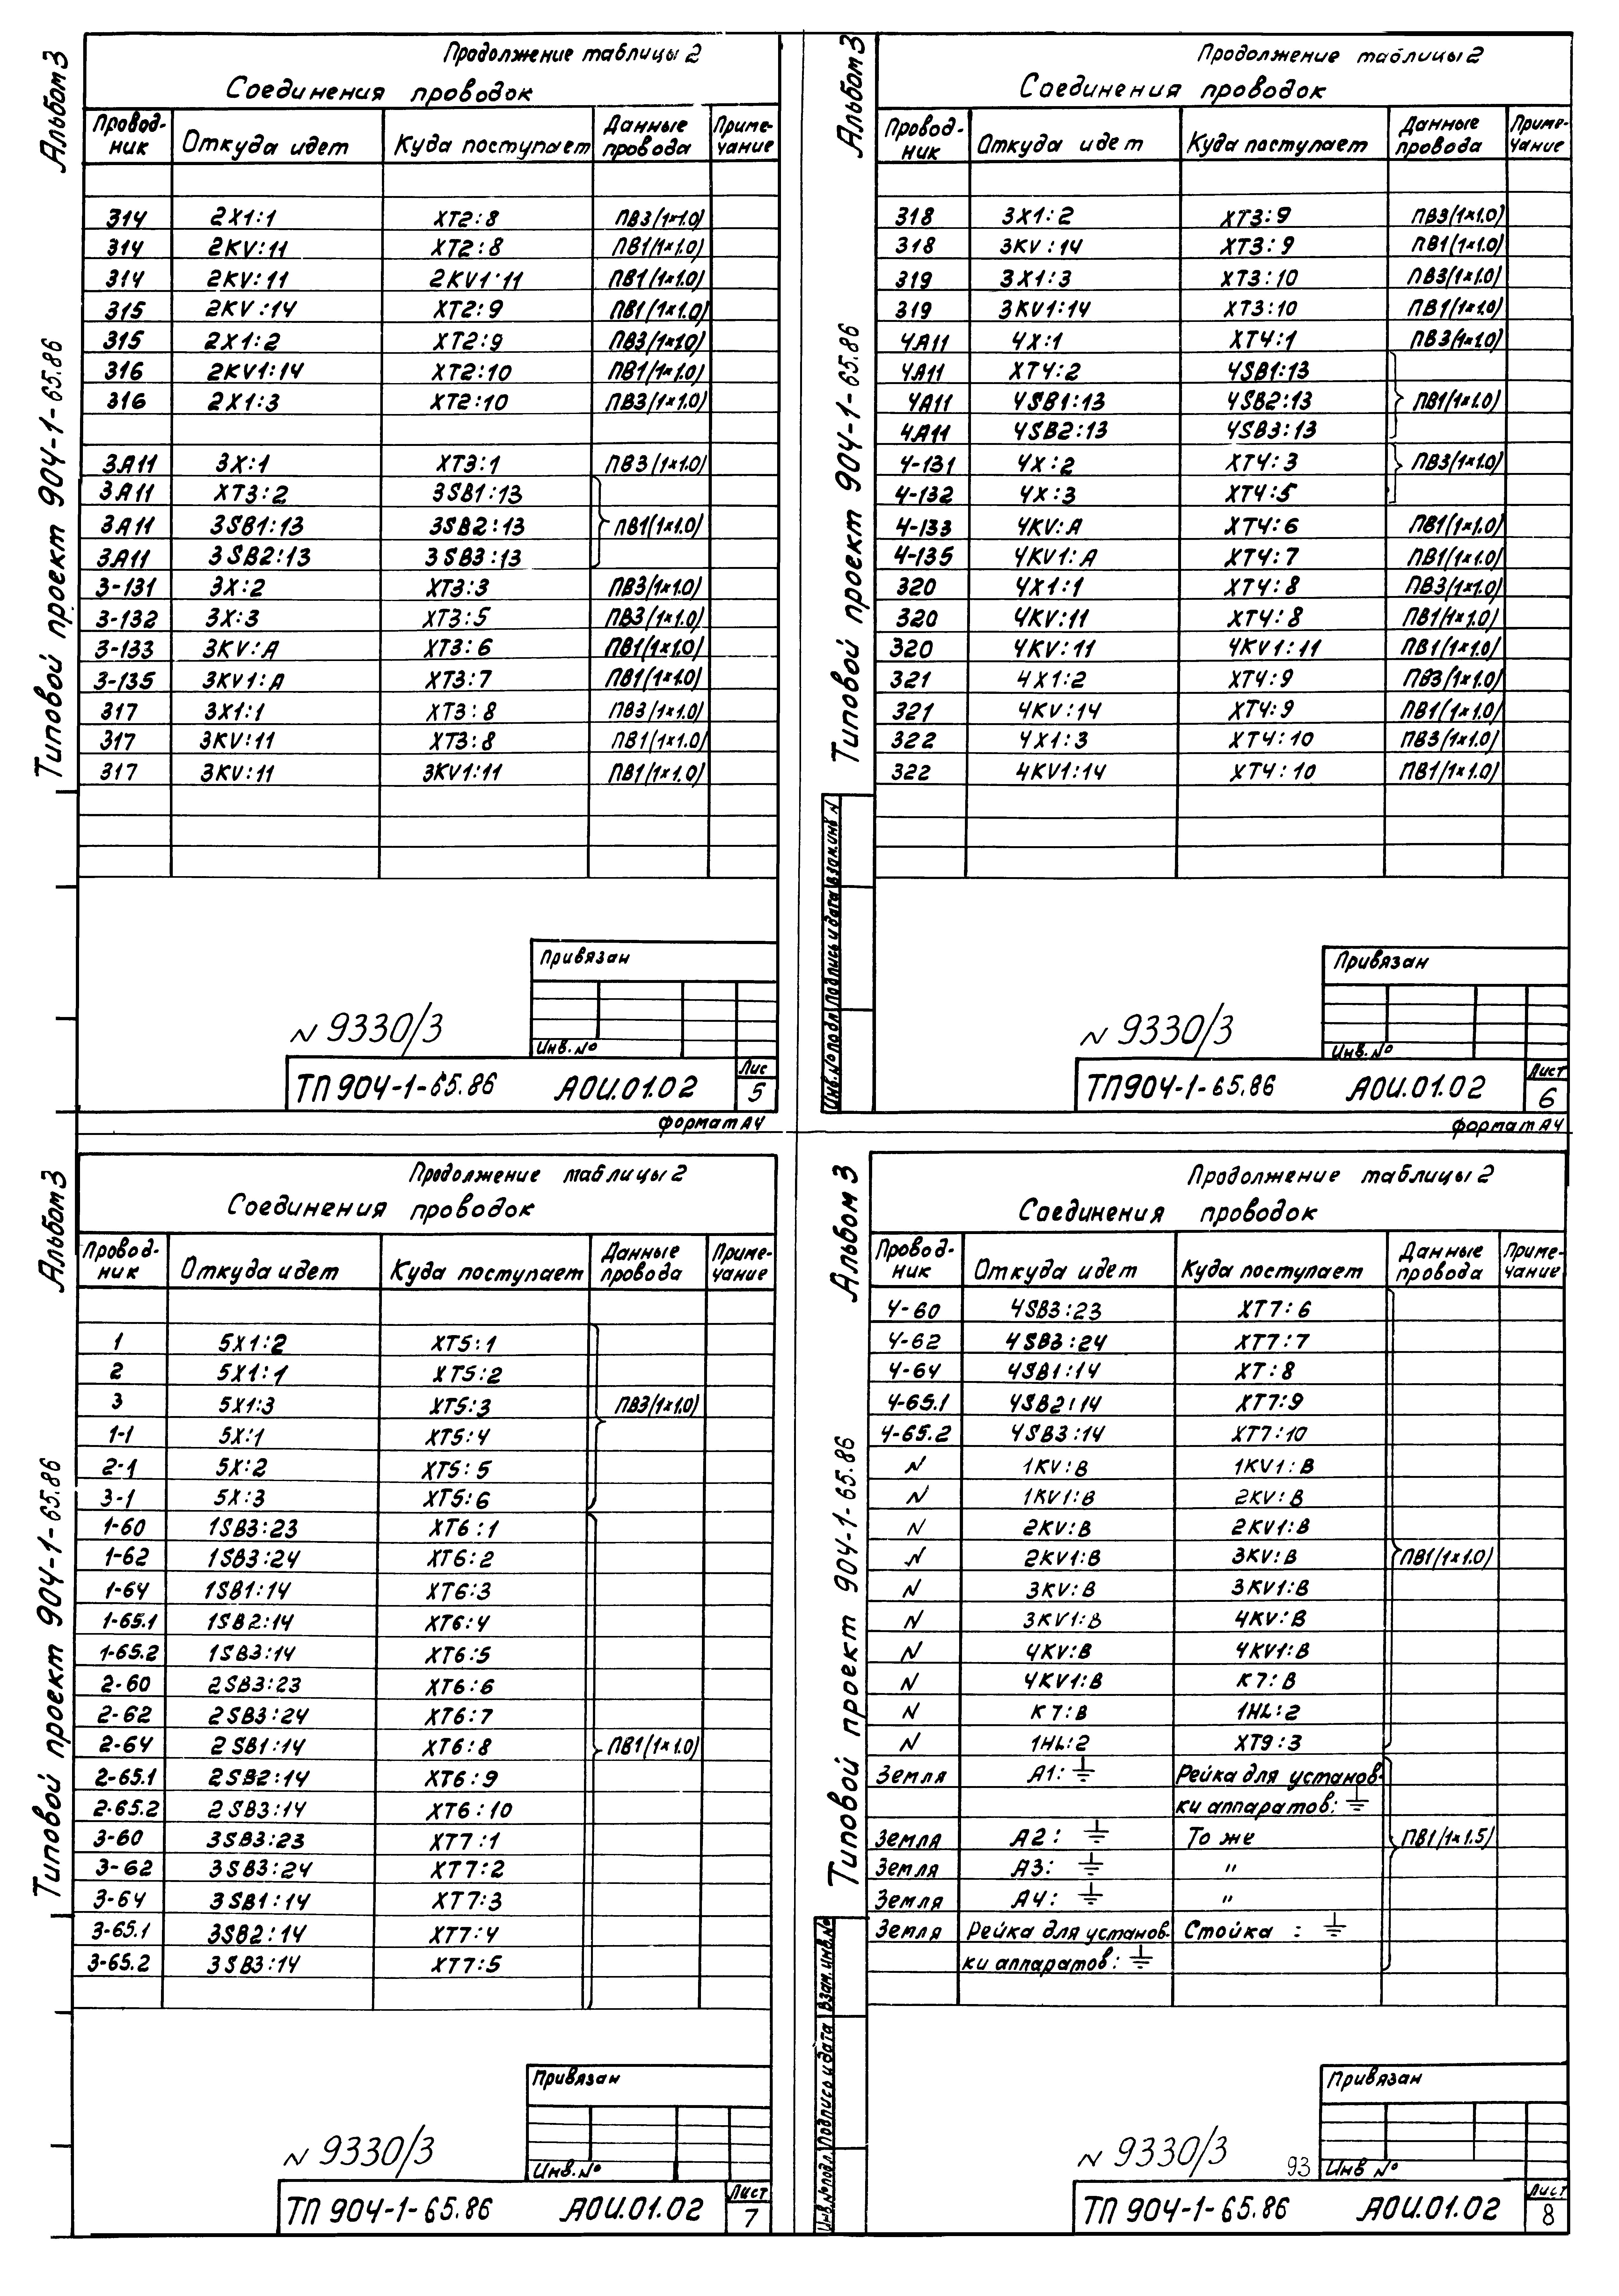 Альбом 3
Типовой проект 904-1-65.86
Продолжение таблицы 2
Соединения проводок
Провод-ник Откуда идет Куда поступает Данные провода Приме-чание
314 2X1:1 XT2:8 ПВ3(1×1.0)
314 2KV:11 XT2:8 ПВ1(1×1.0)
314 2KV:11 2KV1:11 ПВ1(1×1.0)
315 2KV:14 XT2:9 ПВ1(1×1.0)
315 2X1:2 XT2:9 ПВ3(1×1.0)
316 2KV1:14 XT2:10 ПВ1(1×1.0)
316 2X1:3 XT2:10 ПВ3(1×1.0)
3A11 3X:1 XT3:1 ПВ3(1×1.0)
3A11 XT3:2 3SB1:13
3A11 3SB1:13 3SB2:13 ПВ1(1×1.0)
3A11 3SB2:13 3SB3:13
3-131 3X:2 XT3:3 ПВ3(1×1.0)
3-132 3X:3 XT3:5 ПВ3(1×1.0)
3-133 3KV:A XT3:6 ПВ1(1×1.0)
3-135 3KV1:A XT3:7 ПВ1(1×1.0)
317 3X1:1 XT3:8 ПВ3(1×1.0)
317 3KV:11 XT3:8 ПВ1(1×1.0)
317 3KV:11 3KV1:11 ПВ1(1×1.0)
Привязан
Инв.№
N 9330/3
ТП 904-1-65.86 АОИ.01.02 Лис 5
формат А4
Альбом 3
Типовой проект 904-1-65.86
Продолжение таблицы 2
Соединения проводок
Провод-ник Откуда идет Куда поступает Данные провода Приме-чание
318 3X1:2 XT3:9 ПВ3(1×1.0)
318 3KV:14 XT3:9 ПВ1(1×1.0)
319 3X1:3 XT3:10 ПВ3(1×1.0)
319 3KV1:14 XT3:10 ПВ1(1×1.0)
4A11 4X:1 XT4:1 ПВ3(1×1.0)
4A11 XT4:2 4SB1:13
4A11 4SB1:13 4SB2:13 ПВ1(1×1.0)
4A11 4SB2:13 4SB3:13
4-131 4X:2 XT4:3 ПВ3(1×1.0)
4-132 4X:3 XT4:5
4-133 4KV:A XT4:6 ПВ1(1×1.0)
4-135 4KV1:A XT4:7 ПВ1(1×1.0)
320 4X1:1 XT4:8 ПВ3(1×1.0)
320 4KV:11 XT4:8 ПВ1(1×1.0)
320 4KV:11 4KV1:11 ПВ1(1×1.0)
321 4X1:2 XT4:9 ПВ3(1×1.0)
321 4KV:14 XT4:9 ПВ1(1×1.0)
322 4X1:3 XT4:10 ПВ3(1×1.0)
322 4KV1:14 XT4:10 ПВ1(1×1.0)
Инв.№ подл Подпись и дата Взам.инв N
Привязан
Инв.№
N 9330/3
ТП 904-1-65.86 АОИ.01.02 Лист 6
формат А4
Альбом 3
Типовой проект 904-1-65.86
Продолжение таблицы 2
Соединения проводок
Провод-ник Откуда идет Куда поступает Данные провода Приме-чание
1 5X1:2 XT5:1
2 5X1:1 XT5:2
3 5X1:3 XT5:3 ПВ3(1×1.0)
1-1 5X:1 XT5:4
2-1 5X:2 XT5:5
3-1 5X:3 XT5:6
1-60 1SB3:23 XT6:1
1-62 1SB3:24 XT6:2
1-64 1SB1:14 XT6:3
1-65.1 1SB2:14 XT6:4
1-65.2 1SB3:14 XT6:5
2-60 2SB3:23 XT6:6
2-62 2SB3:24 XT6:7
2-64 2SB1:14 XT6:8 ПВ1(1×1.0)
2-65.1 2SB2:14 XT6:9
2-65.2 2SB3:14 XT6:10
3-60 3SB3:23 XT7:1
3-62 3SB3:24 XT7:2
3-64 3SB1:14 XT7:3
3-65.1 3SB2:14 XT7:4
3-65.2 3SB3:14 XT7:5
Привязан
Инв.№
N 9330/3
ТП 904-1-65.86 АОИ.01.02 Лист 7
Альбом 3
Типовой проект 904-1-65.86
Продолжение таблицы 2
Соединения проводок
Провод-ник Откуда идет Куда поступает Данные провода Приме-чание
4-60 4SB3:23 XT7:6
4-62 4SB3:24 XT7:7
4-64 4SB1:14 XT:8
4-65.1 4SB2:14 XT7:9
4-65.2 4SB3:14 XT7:10
N 1KV:B 1KV1:B
N 1KV1:B 2KV:B
N 2KV:B 2KV1:B
N 2KV1:B 3KV:B ПВ1(1×1.0)
N 3KV:B 3KV1:B
N 3KV1:B 4KV:B
N 4KV:B 4KV1:B
N 4KV1:B K7:B
N K7:B 1HL:2
N 1HL:2 XT9:3
Земля A1:⏚ Рейка для установ-
ки аппаратов:⏚
Земля A2:⏚ То же ПВ1(1×1.5)
Земля A3:⏚ "
Земля A4:⏚ "
Земля Рейка для установ- Стойка :⏚
ки аппаратов:⏚
Инв.№ подл. Подпись и дата Взам.инв.№
Привязан
Инв №
N 9330/3
93
ТП 904-1-65.86 АОИ.01.02 Лист 8